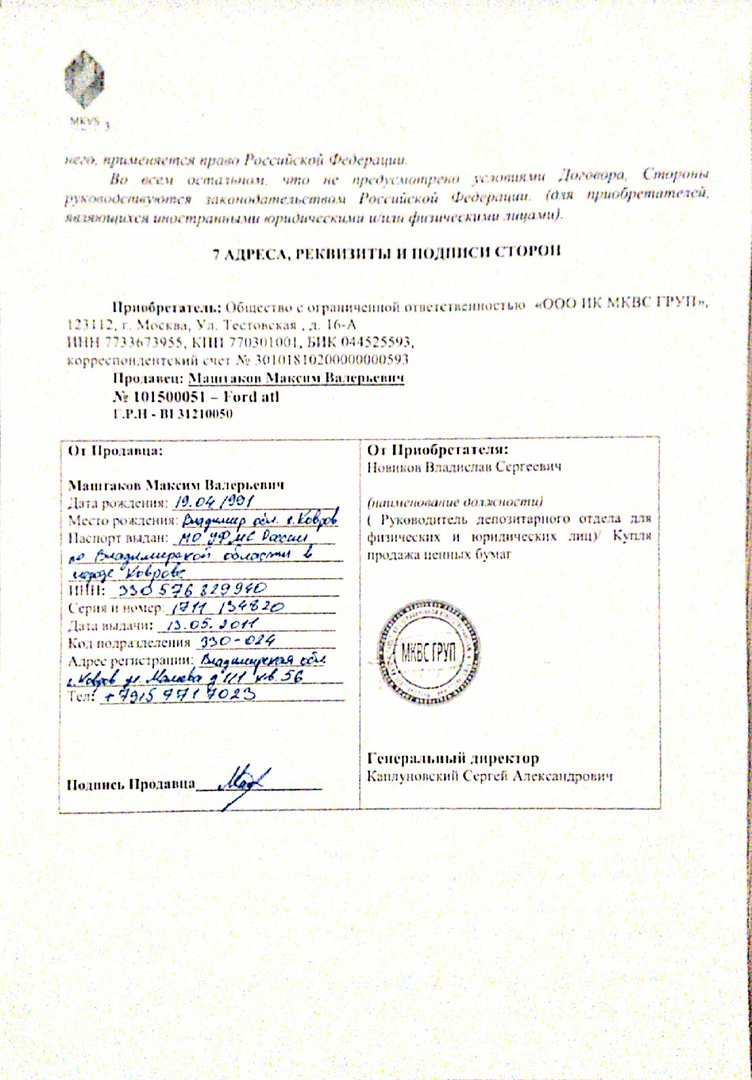 MKVS 3
него, применяется право Российской Федерации.
Во всем остальном, что не предусмотрено условиями Договора, Стороны
руководствуются законодательством Российской Федерации. (для приобретателей,
являющихся иностранными юридическими и/или физическими лицами).
7 АДРЕСА, РЕКВИЗИТЫ И ПОДПИСИ СТОРОН
Приобретатель: Общество с ограниченной ответственностью «ООО ИК МКВС ГРУП»,
123112, г. Москва, Ул. Тестовская , д. 16-А
ИНН 7733673955, КПП 770301001, БИК 044525593,
корреспондентский счет № 30101810200000000593
Продавец: Маштаков Максим Валерьевич
№ 101500051 – Ford atl
Г.Р.Н - BI 31210050
От Продавца:
Маштаков Максим Валерьевич
Дата рождения: 19.04 1991
Место рождения: Владимир обл. г. Ковров
Паспорт выдан: МО УФМС России
по Владимирской области в
городе Коврове
ИНН: 330576829940
Серия и номер: 1711 134820
Дата выдачи: 13.05.2011
Код подразделения 330-024
Адрес регистрации: Владимирская обл.
г. Ковров ул д 111 кв 56
Тел: +7915 7717023
Подпись Продавца
От Приобретателя:
Новиков Владислав Сергеевич
(наименование должности)
( Руководитель депозитарного отдела для
физических и юридических лиц)/ Купля
продажа ценных бумаг
МКВС ГРУП
Генеральный директор
Каплуновский Сергей Александрович